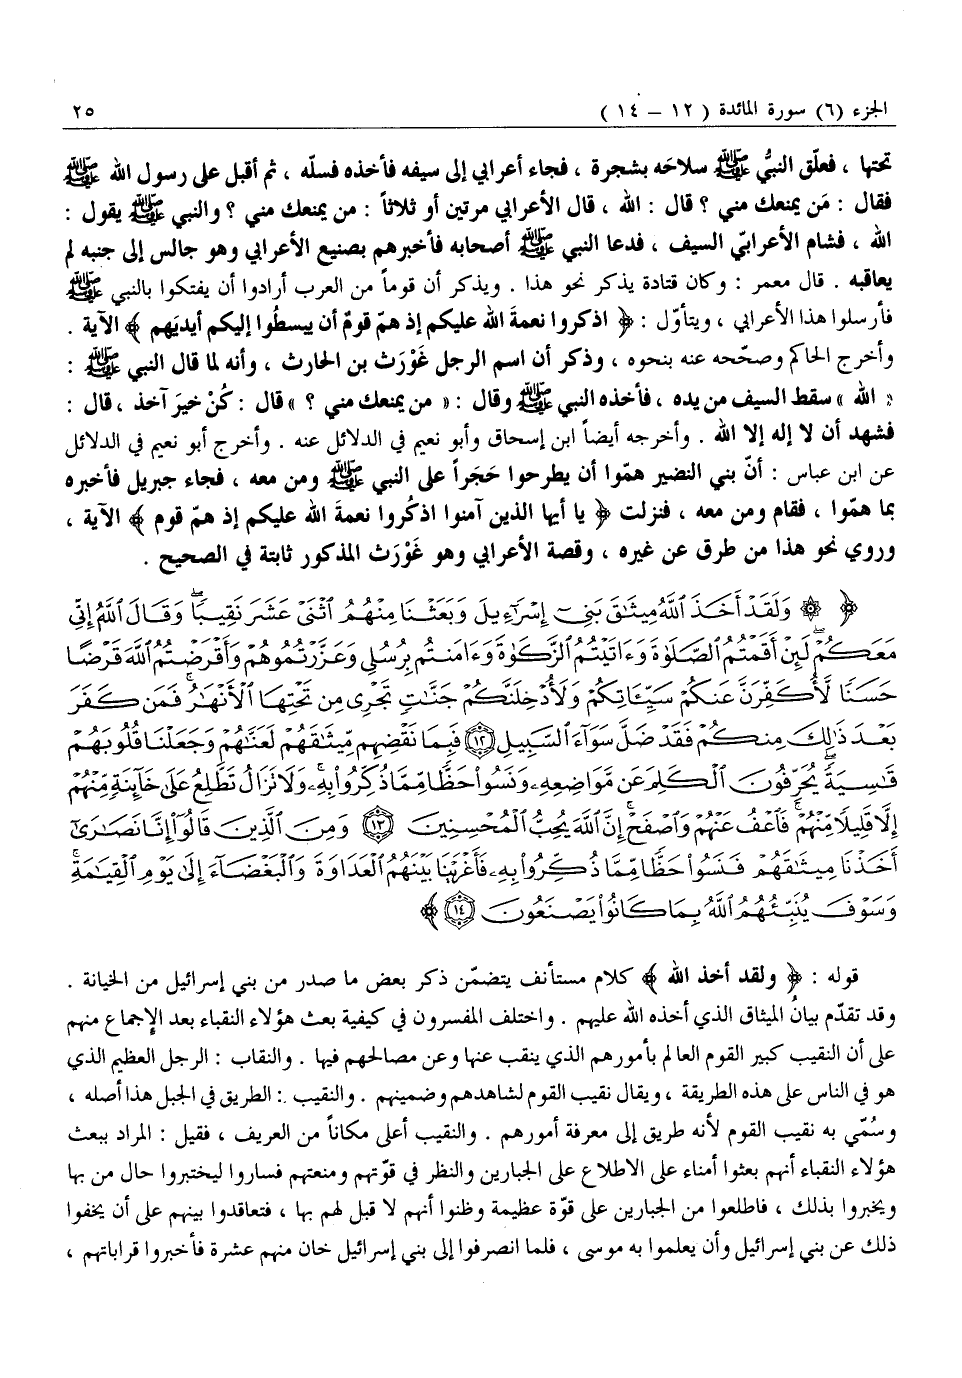 الجزء (٦) سورة المائدة ( ١٢ – ١٤ ) ٢٥
تحتها ، فعلّق النبيُّ ﷺ سلاحَه بشجرة ، فجاء أعرابي إلى سيفه فأخذه فسلّه ، ثم أقبل على رسول الله ﷺ
فقال : مَن يمنعك مني ؟ قال : الله ، قال الأعرابي مرتين أو ثلاثاً : من يمنعك مني ؟ والنبي ﷺ يقول :
الله ، فشام الأعرابيّ السيف ، فدعا النبي ﷺ أصحابه فأخبرهم بصنيع الأعرابي وهو جالس إلى جنبه لم
يعاقبه . قال معمر : وكان قتادة يذكر نحو هذا . ويذكر أن قوماً من العرب أرادوا أن يفتكوا بالنبي ﷺ
فأرسلوا هذا الأعرابي ، ويتأوّل : ﴿ اذكروا نعمةَ الله عليكم إذ همّ قومٌ أن يبسطُوا إليكم أيديَهم ﴾ الآية .
وأخرج الحاكم وصحّحه عنه بنحوه ، وذكر أن اسم الرجل غَوْرَث بن الحارث ، وأنه لما قال النبي ﷺ :
« الله » سقط السيف من يده ، فأخذه النبي ﷺ وقال : « من يمنعك مني ؟ » قال : كُنْ خيرَ آخذ ، قال :
فشهد أن لا إله إلا الله . وأخرجه أيضاً ابن إسحاق وأبو نعيم في الدلائل عنه . وأخرج أبو نعيم في الدلائل
عن ابن عباس : أنّ بني النضير همّوا أن يطرحوا حَجَراً على النبي ﷺ ومن معه ، فجاء جبريل فأخبره
بما همّوا ، فقام ومن معه ، فنزلت ﴿ يا أيها الذين آمنوا اذكُروا نعمةَ الله عليكم إذ همّ قوم ﴾ الآية ،
وروي نحو هذا من طرق عن غيره ، وقصة الأعرابي وهو غَوْرَث المذكور ثابتة في الصحيح .
﴿ ۞ وَلَقَدْ أَخَذَ ٱللَّهُ مِيثَٰقَ بَنِىٓ إِسْرَٰٓءِيلَ وَبَعَثْنَا مِنْهُمُ ٱثْنَىْ عَشَرَ نَقِيبًا ۖ وَقَالَ ٱللَّهُ إِنِّى
مَعَكُمْ ۖ لَئِنْ أَقَمْتُمُ ٱلصَّلَوٰةَ وَءَاتَيْتُمُ ٱلزَّكَوٰةَ وَءَامَنتُم بِرُسُلِى وَعَزَّرْتُمُوهُمْ وَأَقْرَضْتُمُ ٱللَّهَ قَرْضًا
حَسَنًا لَّأُكَفِّرَنَّ عَنكُمْ سَيِّـَٔاتِكُمْ وَلَأُدْخِلَنَّكُمْ جَنَّٰتٍ تَجْرِى مِن تَحْتِهَا ٱلْأَنْهَٰرُ ۚ فَمَن كَفَرَ
بَعْدَ ذَٰلِكَ مِنكُمْ فَقَدْ ضَلَّ سَوَآءَ ٱلسَّبِيلِ ١٢ فَبِمَا نَقْضِهِم مِّيثَٰقَهُمْ لَعَنَّٰهُمْ وَجَعَلْنَا قُلُوبَهُمْ
قَٰسِيَةً ۖ يُحَرِّفُونَ ٱلْكَلِمَ عَن مَّوَاضِعِهِۦ ۙ وَنَسُوا۟ حَظًّا مِّمَّا ذُكِّرُوا۟ بِهِۦ ۚ وَلَا تَزَالُ تَطَّلِعُ عَلَىٰ خَآئِنَةٍ مِّنْهُمْ
إِلَّا قَلِيلًا مِّنْهُمْ ۖ فَٱعْفُ عَنْهُمْ وَٱصْفَحْ ۚ إِنَّ ٱللَّهَ يُحِبُّ ٱلْمُحْسِنِينَ ١٣ وَمِنَ ٱلَّذِينَ قَالُوٓا۟ إِنَّا نَصَٰرَىٰٓ
أَخَذْنَا مِيثَٰقَهُمْ فَنَسُوا۟ حَظًّا مِّمَّا ذُكِّرُوا۟ بِهِۦ فَأَغْرَيْنَا بَيْنَهُمُ ٱلْعَدَاوَةَ وَٱلْبَغْضَآءَ إِلَىٰ يَوْمِ ٱلْقِيَٰمَةِ ۚ
وَسَوْفَ يُنَبِّئُهُمُ ٱللَّهُ بِمَا كَانُوا۟ يَصْنَعُونَ ١٤ ﴾
قوله : ﴿ ولقد أخذ الله ﴾ كلام مستأنف يتضمّن ذكر بعض ما صدر من بني إسرائيل من الخيانة .
وقد تقدّم بيانُ الميثاق الذي أخذه الله عليهم . واختلف المفسرون في كيفية بعث هؤلاء النقباء بعد الإجماع منهم
على أن النقيب كبير القوم العالم بأمورهم الذي ينقب عنها وعن مصالحهم فيها . والنقاب : الرجل العظيم الذي
هو في الناس على هذه الطريقة ، ويقال نقيب القوم لشاهدهم وضمينهم . والنقيب : الطريق في الجبل هذا أصله ،
وسُمّي به نقيب القوم لأنه طريق إلى معرفة أمورهم . والنقيب أعلى مكاناً من العريف ، فقيل : المراد ببعث
هؤلاء النقباء أنهم بعثوا أمناء على الاطلاع على الجبارين والنظر في قوّتهم ومنعتهم فساروا ليختبروا حال من بها
ويخبروا بذلك ، فاطلعوا من الجبارين على قوّة عظيمة وظنوا أنهم لا قبل لهم بها ، فتعاقدوا بينهم على أن يخفوا
ذلك عن بني إسرائيل وأن يعلموا به موسى ، فلما انصرفوا إلى بني إسرائيل خان منهم عشرة فأخبروا قراباتهم ،